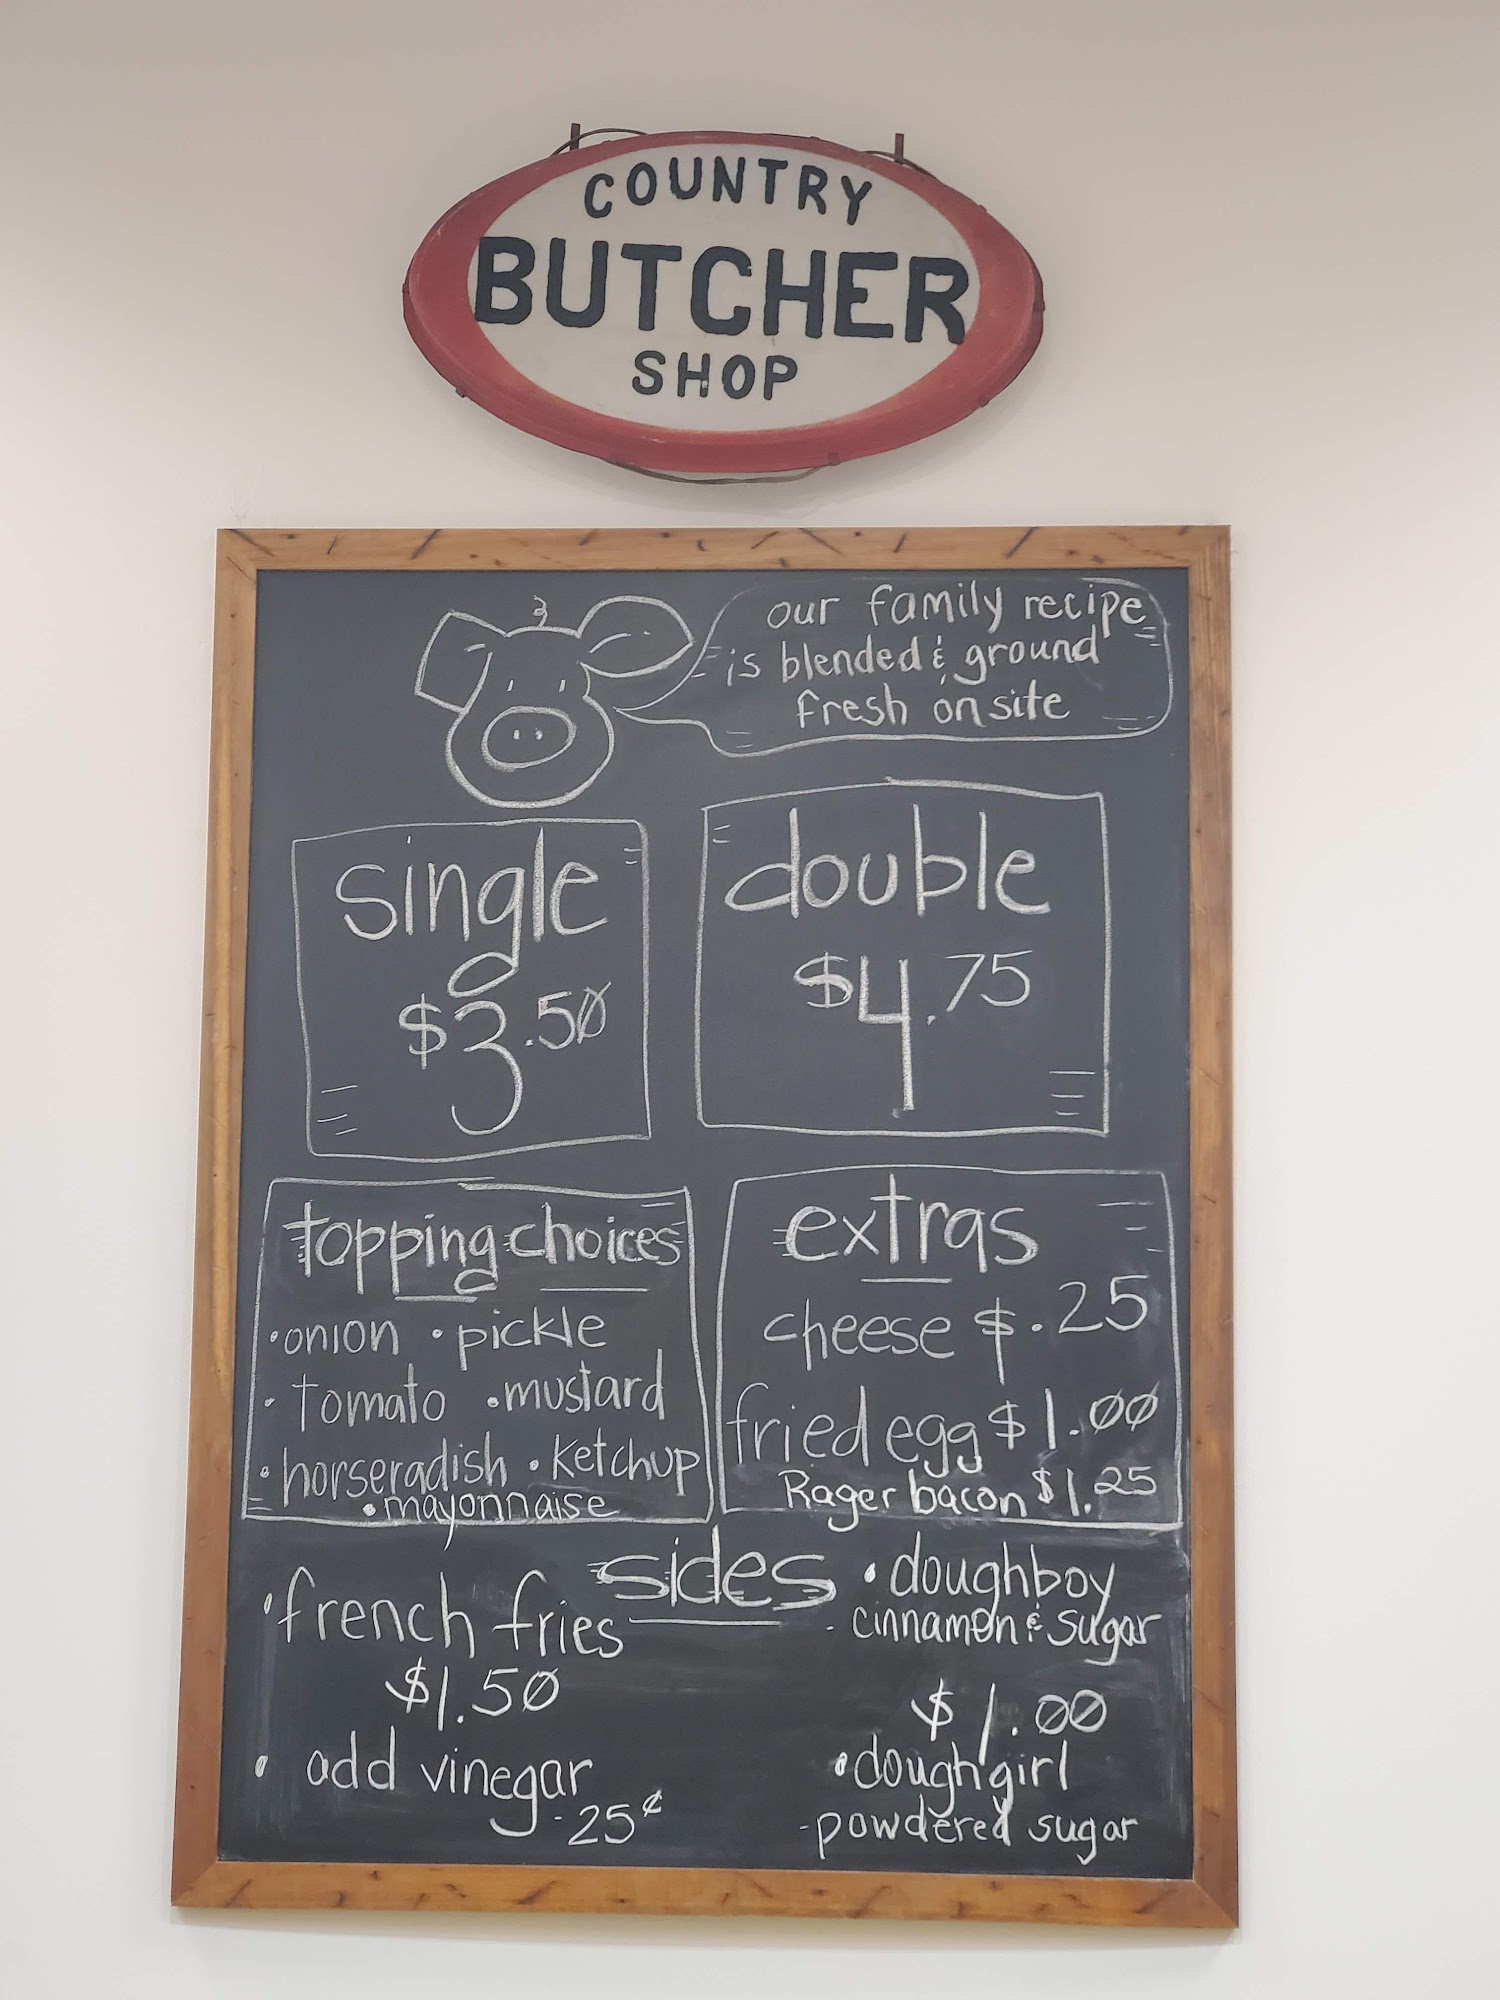 COUNTRY
BUTCHER
SHOP
our family recipe
is blended & ground
fresh on site
single
$3.50
double
$4.75
topping choices
• onion • pickle
• tomato • mustard
• horseradish • ketchup
• mayonnaise
extras
cheese $.25
fried egg $1.00
Rager bacon $1.25
sides
• french fries
$1.50
• add vinegar
- 25¢
• doughboy
- cinnamon & sugar
$1.00
• doughgirl
- powdered sugar